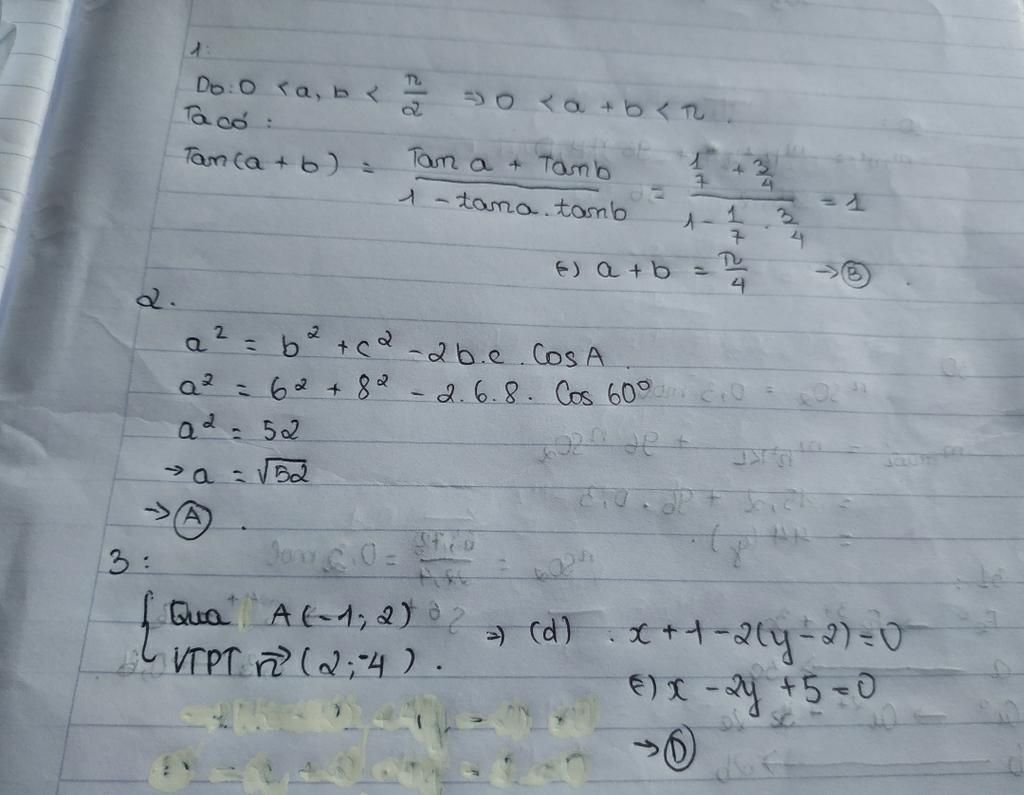 1:
Do: 0 < a, b < π/2 => 0 < a + b < π.
Ta có:
Tan(a + b) = (Tan a + Tan b)/(1 - tan a . tan b) = (1/7 + 3/4)/(1 - 1/7 . 3/4) = 1
(=) a + b = π/4 -> Ⓑ.
2.
a² = b² + c² - 2b.c. Cos A
a² = 6² + 8² - 2.6.8. Cos 60°
a² = 52
-> a = √52
-> Ⓐ.
3:
{ Qua A(-1; 2)
VTPT n→ (2; -4). => (d) . x + 1 - 2(y - 2) = 0
(=) x - 2y + 5 = 0
-> Ⓓ